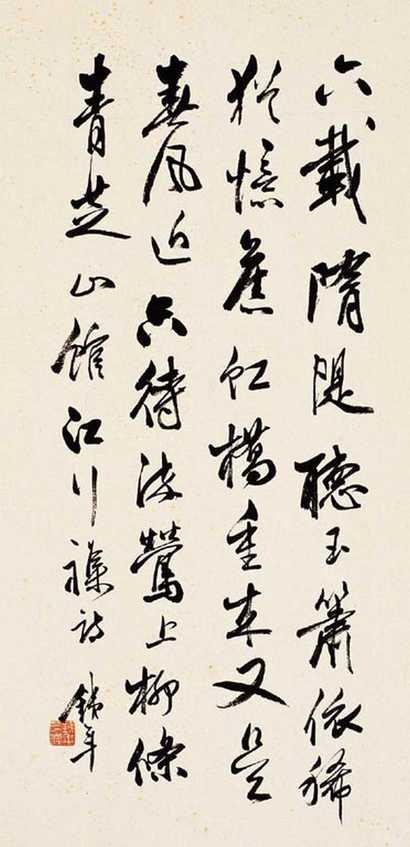 六載隋堤聽玉簫依稀
猶憶舊紅橋重來又是
春風近只待流鶯上柳條
青芝山館江行襍詩 鐵年